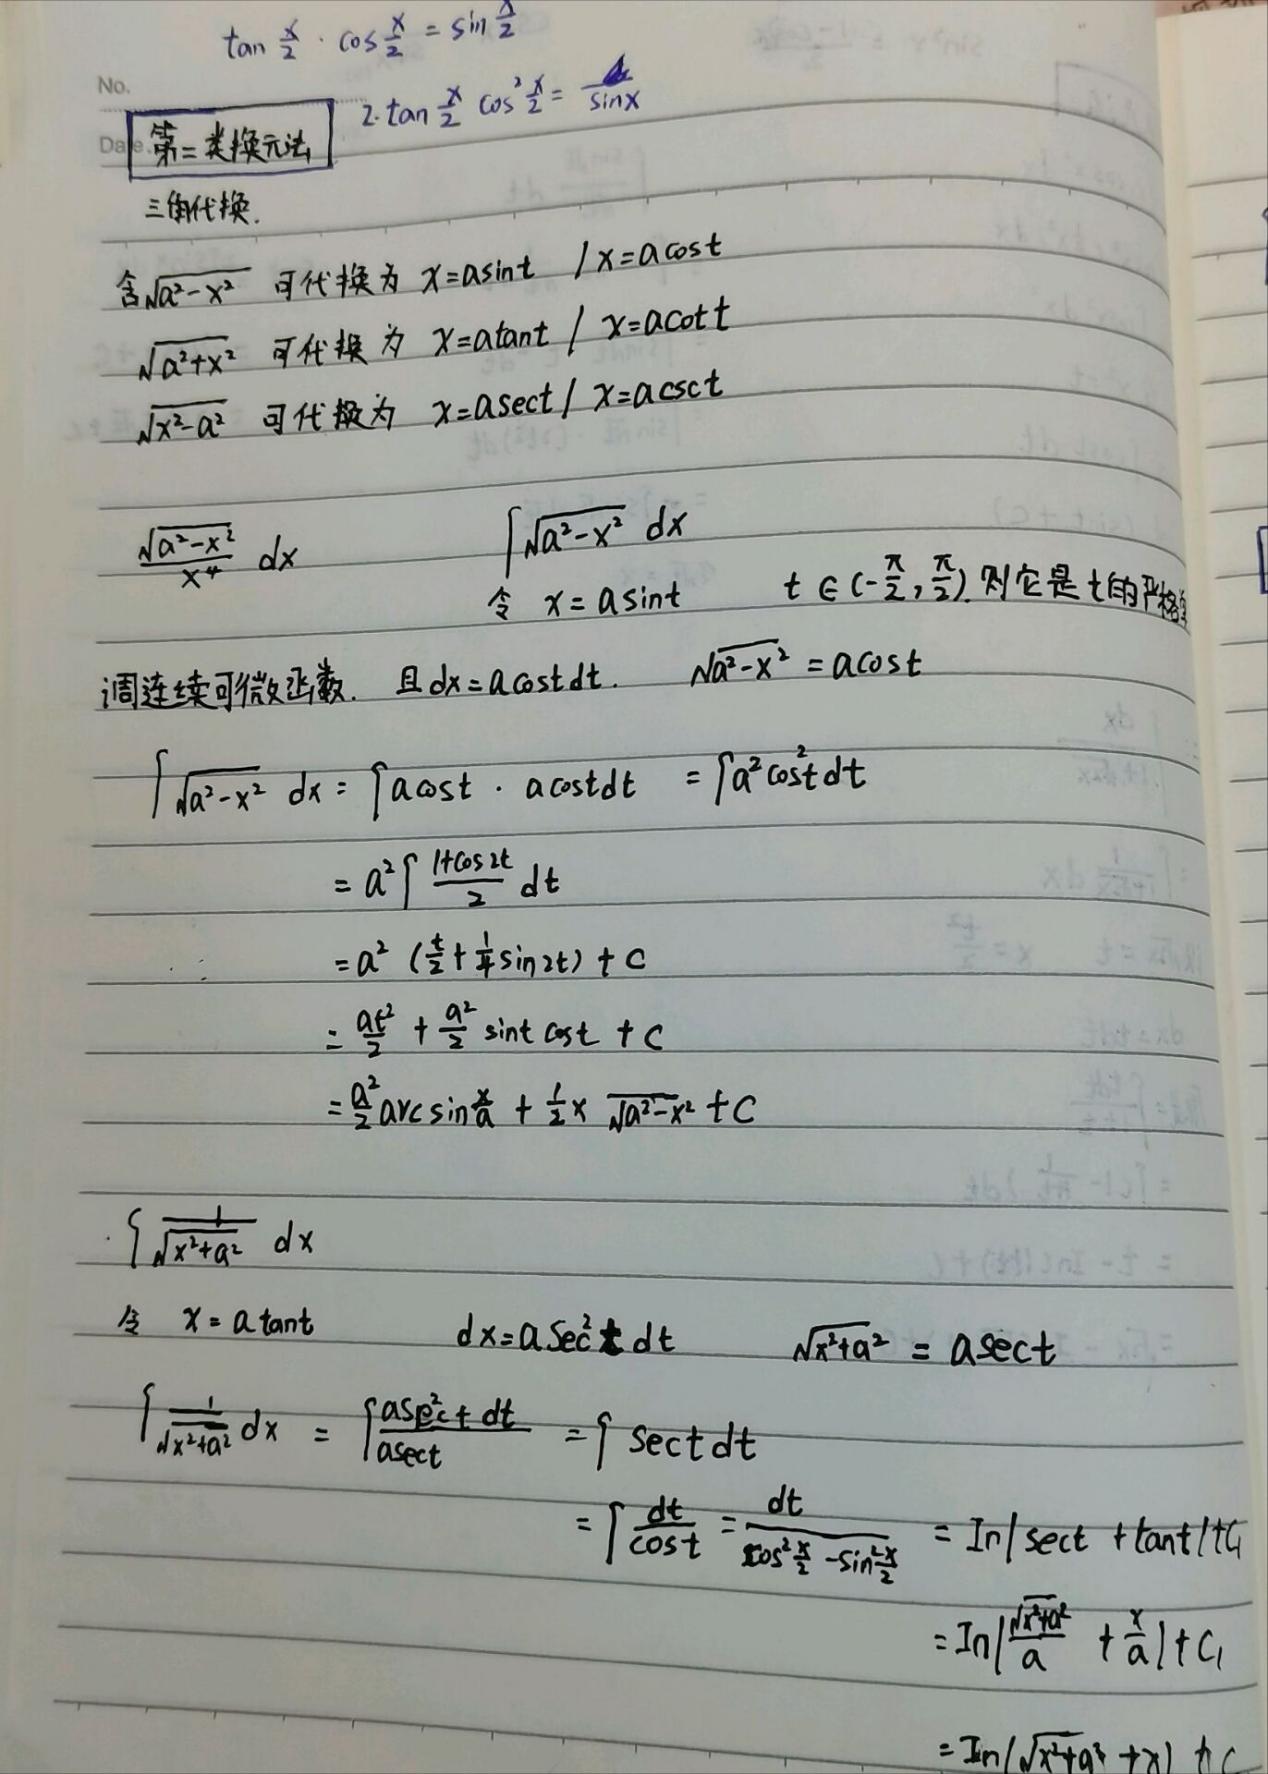 tan x/2 · cos x/2 = sin x/2
No.
2·tan x/2 cos² x/2 = sinx
Date.
第二类换元法
三角代换.
含√(a²-x²) 可代换为 x=asint / x=acost
√(a²+x²) 可代换为 x=atant / x=acott
√(x²-a²) 可代换为 x=asect / x=acsct
√(a²-x²)/x⁴ dx ∫√(a²-x²) dx
令 x=asint t∈(-π/2, π/2). 则它是t的严格单
调连续可微函数. 且dx=acostdt. √(a²-x²) = acost
∫√(a²-x²) dx = ∫acost · acostdt = ∫a²cos²t dt
= a²∫(1+cos2t)/2 dt
= a² (t/2 + 1/4 sin2t) + C
= at²/2 + a²/2 sint cost + C
= a²/2 arcsin x/a + 1/2 x √(a²-x²) + C
∫1/√(x²+a²) dx
令 x=atant dx=asec²t dt √(x²+a²) = asect
∫1/√(x²+a²) dx = ∫asec²t dt/asect = ∫sectdt
= ∫dt/cost = dt/(cos² x/2 - sin² x/2) = In|sect+tant|+C₁
= In|√(x²+a²)/a + x/a|+C₁
= In|√(x²+a²)+x|+C